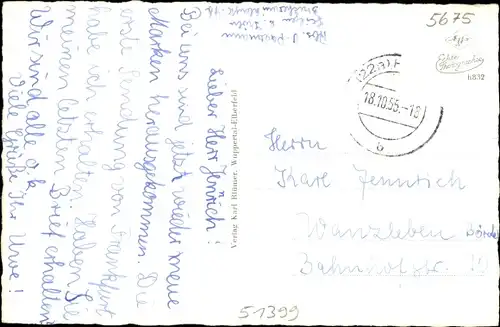 Lieber Herr Jennrich!
Bei uns sind jetzt wieder neue
Marken herausgekommen. Die
erste Sendung von Frankfurt
habe ich erhalten. Haben Sie
meinen letzten Brief erhalten
Wir sind alle o.k.
Viele Grüße Ihr Uwe!
Verlag Karl Blümer, Wuppertal-Elberfeld
5675
Echte
Photographie
18.10.55.-18
b
Herrn
Karl Jennrich
Wanzleben Börde
Bahnhofstr. 19
51399